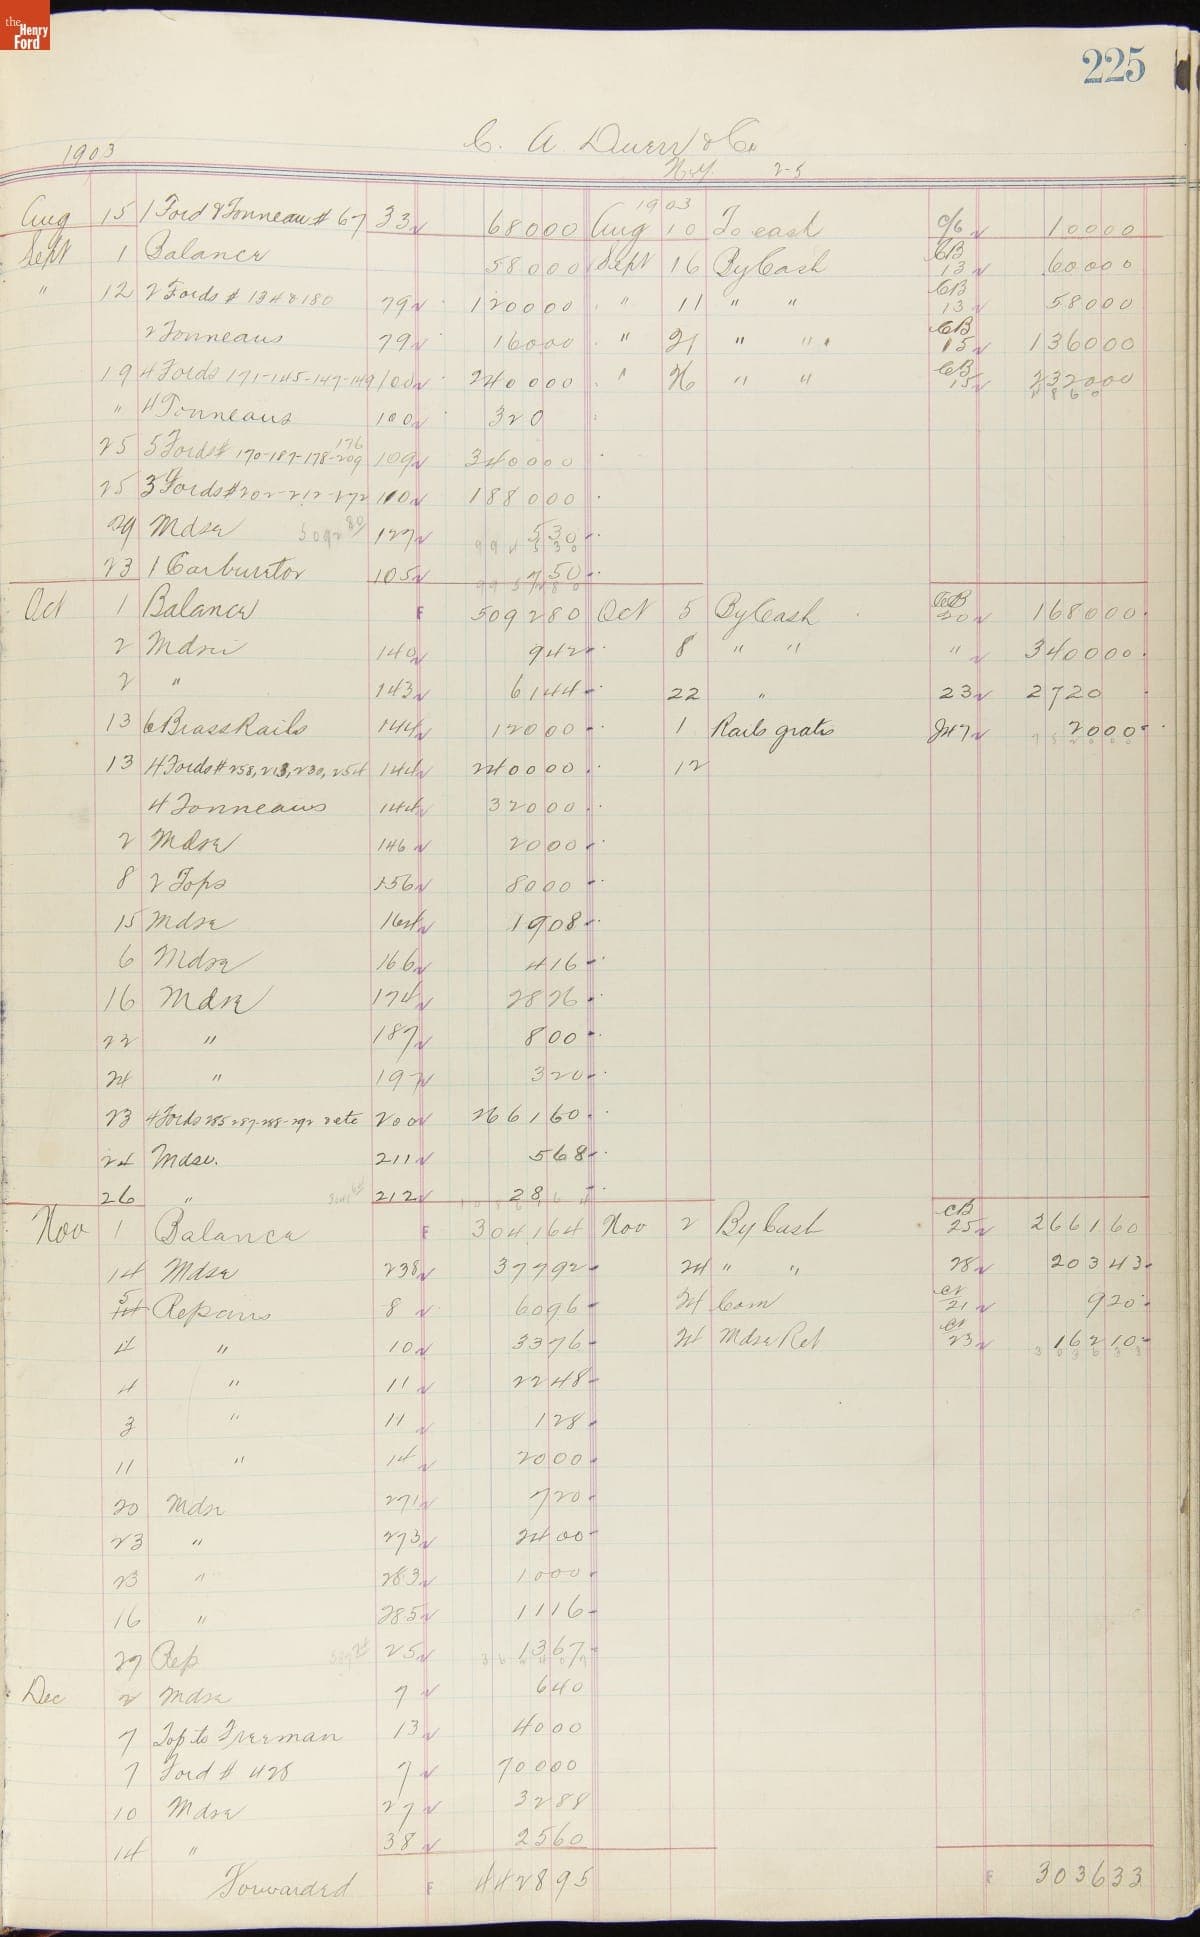 the
Henry
Ford
225
C. A. Duerr & Co.
1903
N.Y. 2-5
1903
Aug 15 1 Ford & Tonneau # 67 33 68000 Aug 10 To cash C/6 10000
Sept 1 Balance 58000 Sept 16 By Cash CB 13 60000
" 12 2 Fords # 134 & 180 79 120000 " 11 " " CB 13 58000
2 Tonneaus 79 16000 " 21 " " CB 15 136000
19 4 Fords 171-145-147-149 100 240000 " 26 " " CB 15 232000
" 4 Tonneaus 100 320 4860
25 5 Fords # 170-187-178-209 176 109 340000
25 3 Fords # 202-212-172 110 188000
29 Mdse 5092 80 127 530
23 1 Carburetor 105 750
Oct 1 Balance F 509280 Oct 5 By Cash CB 20 168000
2 Mdse 140 942 8 " " " 340000
2 " 143 6144 22 " 23 2720
13 6 Brass Rails 144 12000 1 Rails gratis J47 2000
13 4 Fords # 258, 213, 230, 254 144 240000 12
4 Tonneaus 144 32000
2 Mdse 146 2000
8 2 Tops 156 8000
15 Mdse 164 1908
6 Mdse 166 416
16 Mdse 174 2826
22 " 187 800
24 " 197 320
23 4 Fords 285-287-288-292 2 etc 200 266160
24 Mdse. 211 568
26 " 212 28
Nov 1 Balance F 304164 Nov 2 By Cash CB 25 266160
14 Mdse 238 37792 24 " " 28 20343
5 Repairs 8 6096 24 Com CR 21 920
4 " 10 3376 24 Mdse Ret CR 23 16210
4 " 11 2248 303633
3 " 11 128
11 " 14 2000
20 Mdse 271 720
23 " 273 2400
23 " 283 1000
16 " 285 1116
27 Rep 25 1367
Dec 2 Mdse 7 640
7 Top to Freeman 13 4000
7 Ford # 428 7 70000
10 Mdse 27 3288
14 " 38 2560
Forwarded F 442895 F 303633